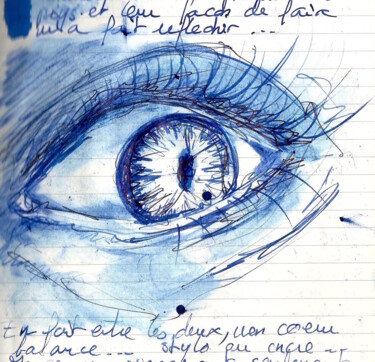 pays et leur façon de faire
m'a fait réfléchir ...
En fait entre les deux, mon coeur
balance ... stylo ou encre ...